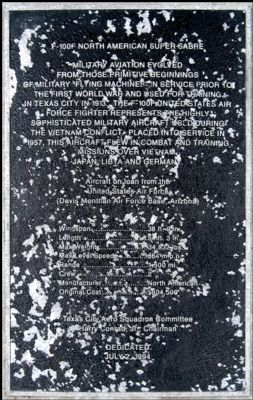 F-100F NORTH AMERICAN SUPER SABRE
MILITARY AVIATION EVOLVED
FROM THOSE PRIMITIVE BEGINNINGS
OF MILITARY "FLYING MACHINES" IN SERVICE PRIOR TO
THE FIRST WORLD WAR AND USED FOR TRAINING
IN TEXAS CITY IN 1913. THE F-100F UNITED STATES AIR
FORCE FIGHTER REPRESENTS THE HIGHLY
SOPHISTICATED MILITARY AIRCRAFT USED DURING
THE VIETNAM CONFLICT. PLACED INTO SERVICE IN
1957, THIS AIRCRAFT FLEW IN COMBAT AND TRAINING
MISSIONS OVER VIETNAM,
JAPAN, LIBYA AND GERMANY.
Aircraft on loan from the
United States Air Force
(Davis Monthan Air Force Base, Arizona)
Wingspan 38 ft
Length
Max Weight
Max Level Speed
Range
Crew
Manufacturer North American
Original Cost
Texas City Aero Squadron Committee
Harry Conrad, Jr., Chairman
DEDICATED
JULY 2, 1994